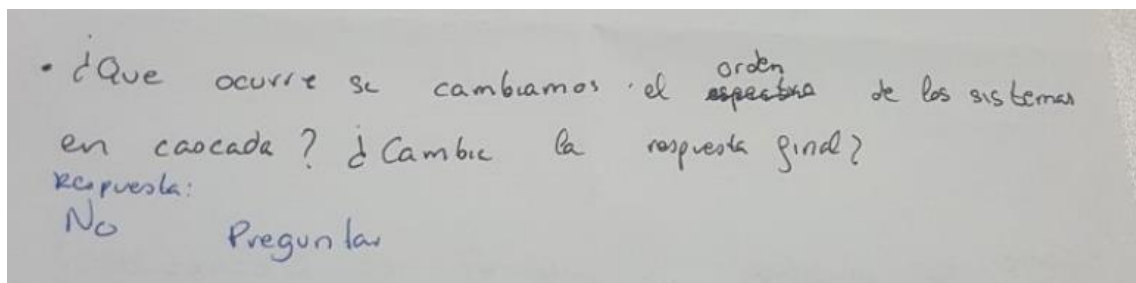 • ¿Que ocurre si cambiamos el orden de los sistemas
en cascada? ¿Cambia la respuesta final?
Respuesta:
No Preguntar